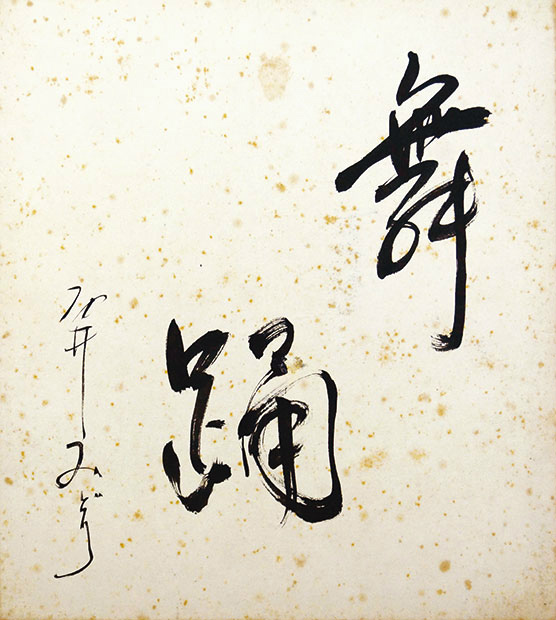 舞踊
石井みどり